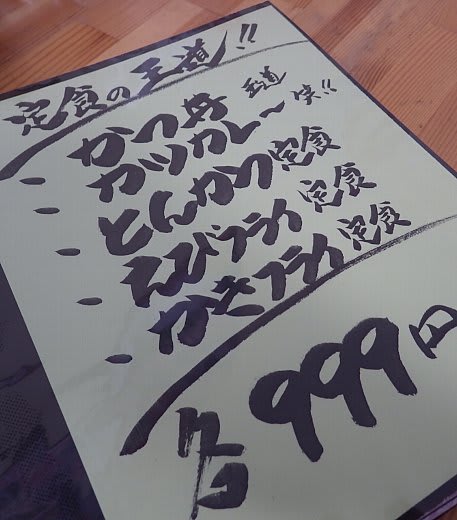 定食の王道!!
かつ丼 王道
カツカレー 笑!!
とんかつ定食
えびフライ定食
かきフライ定食
各999円